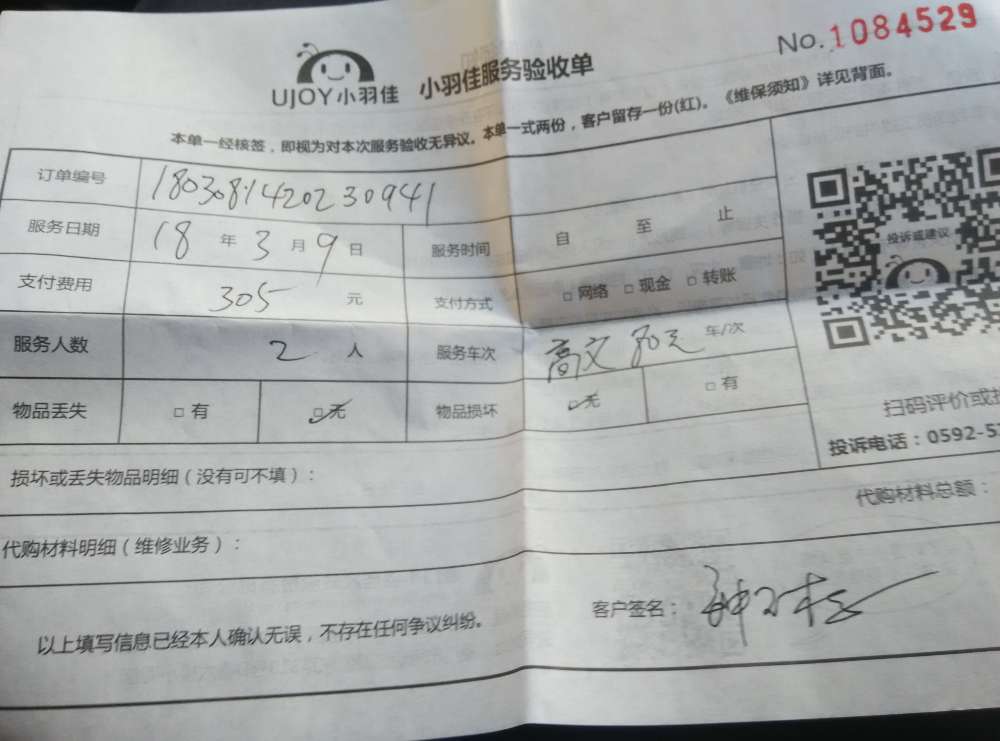 No.1084529
UJOY小羽佳 小羽佳服务验收单
本单一经核签，即视为对本次服务验收无异议。本单一式两份，客户留存一份(红)。《维保须知》详见背面。
订单编号 18030814202230941
服务日期 18 年 3 月 9 日 服务时间 自 至 止
支付费用 305 元 支付方式 □网络 □现金 □转账
投诉或建议
服务人数 2 人 服务车次 车/次
物品丢失 □有 □无 物品损坏 □无 □有
扫码评价或
投诉电话：0592-5
损坏或丢失物品明细（没有可不填）：
代购材料总额：
代购材料明细（维修业务）：
以上填写信息已经本人确认无误，不存在任何争议纠纷。
客户签名：